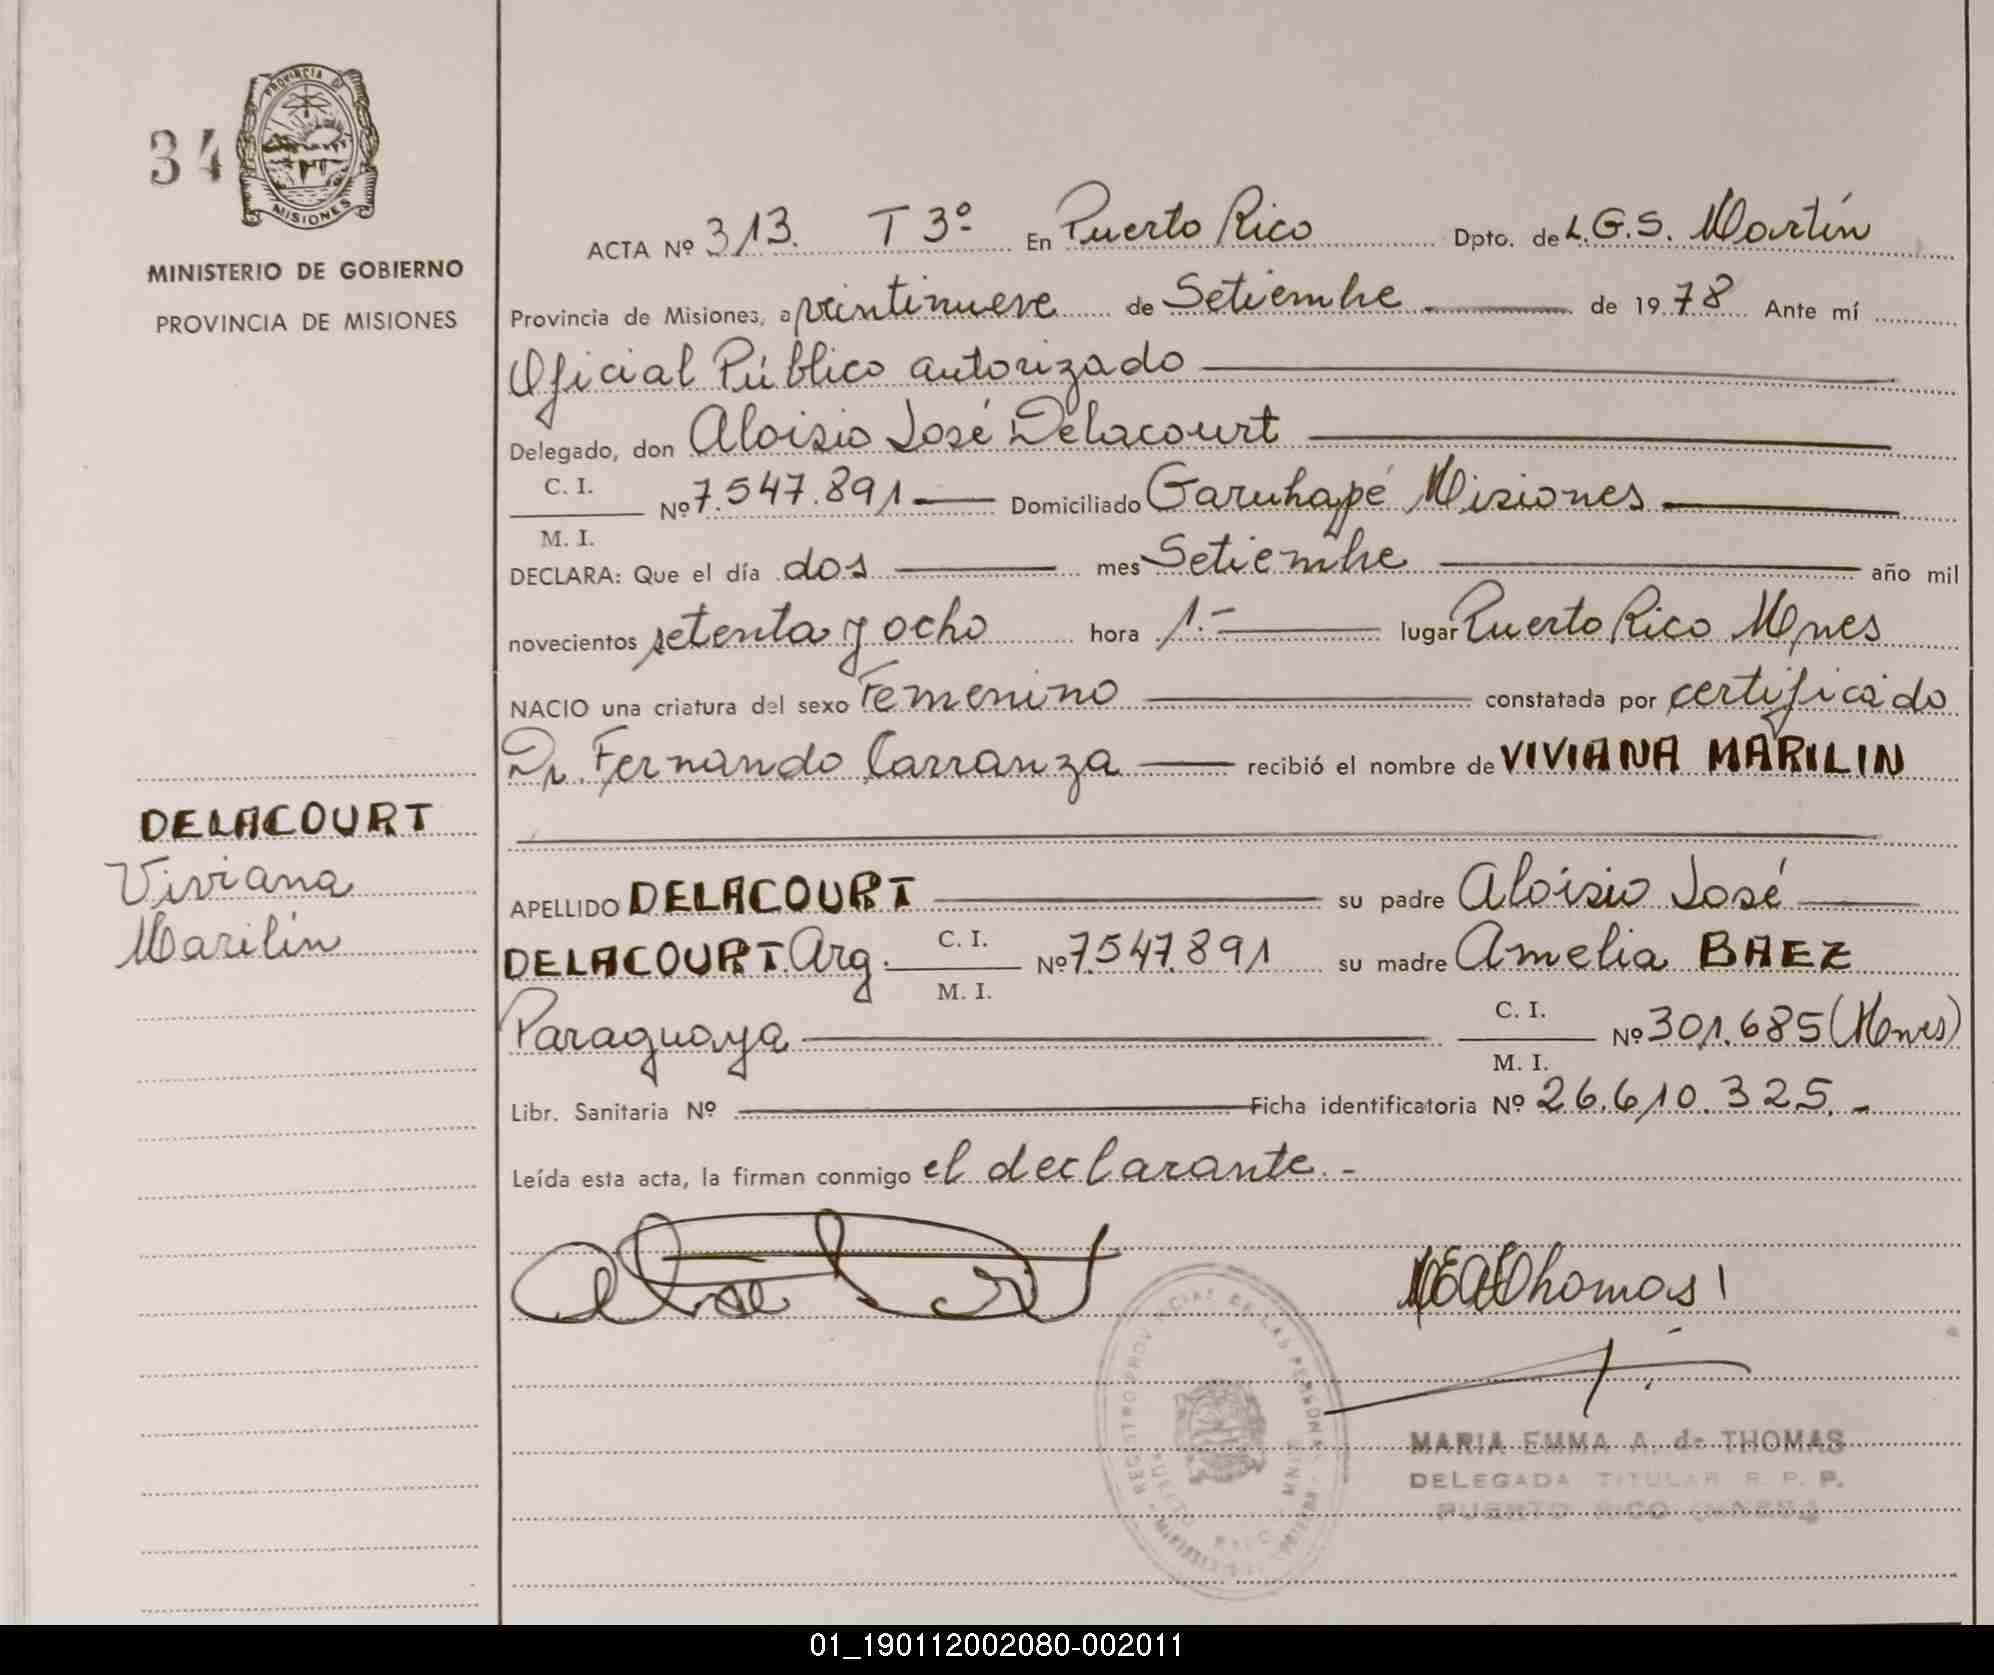 34
PROVINCIA DE
MISIONES
MINISTERIO DE GOBIERNO
PROVINCIA DE MISIONES
DELACOURT
Viviana
Marilín
ACTA Nº 313. T 3º En Puerto Rico Dpto. de L.G.S. Martín
Provincia de Misiones, a veintinueve de Setiembre de 1978 Ante mí
Oficial Público autorizado
Delegado, don Aloisio José Delacourt
C. I.
M. I.
Nº 7.547.891 Domiciliado Garuhapé Misiones
DECLARA: Que el día dos mes Setiembre año mil
novecientos setenta y ocho hora 1.- lugar Puerto Rico Mnes
NACIO una criatura del sexo Femenino constatada por certificado
Dr. Fernando Carranza recibió el nombre de VIVIANA MARILIN
APELLIDO DELACOURT su padre Aloisio José
DELACOURT Arg. C. I. M. I. Nº 7.547.891 su madre Amelia BAEZ
Paraguaya C. I. M. I. Nº 301.685 (Mnes)
Libr. Sanitaria Nº Ficha identificatoria Nº 26.610.325.-
Leída esta acta, la firman conmigo el declarante.-
REGISTRO PROVINCIAL DE LAS PERSONAS
MARIA EMMA A. de THOMAS
DELEGADA TITULAR R. P. P.
PUERTO RICO (MNES)
01_190112002080-002011